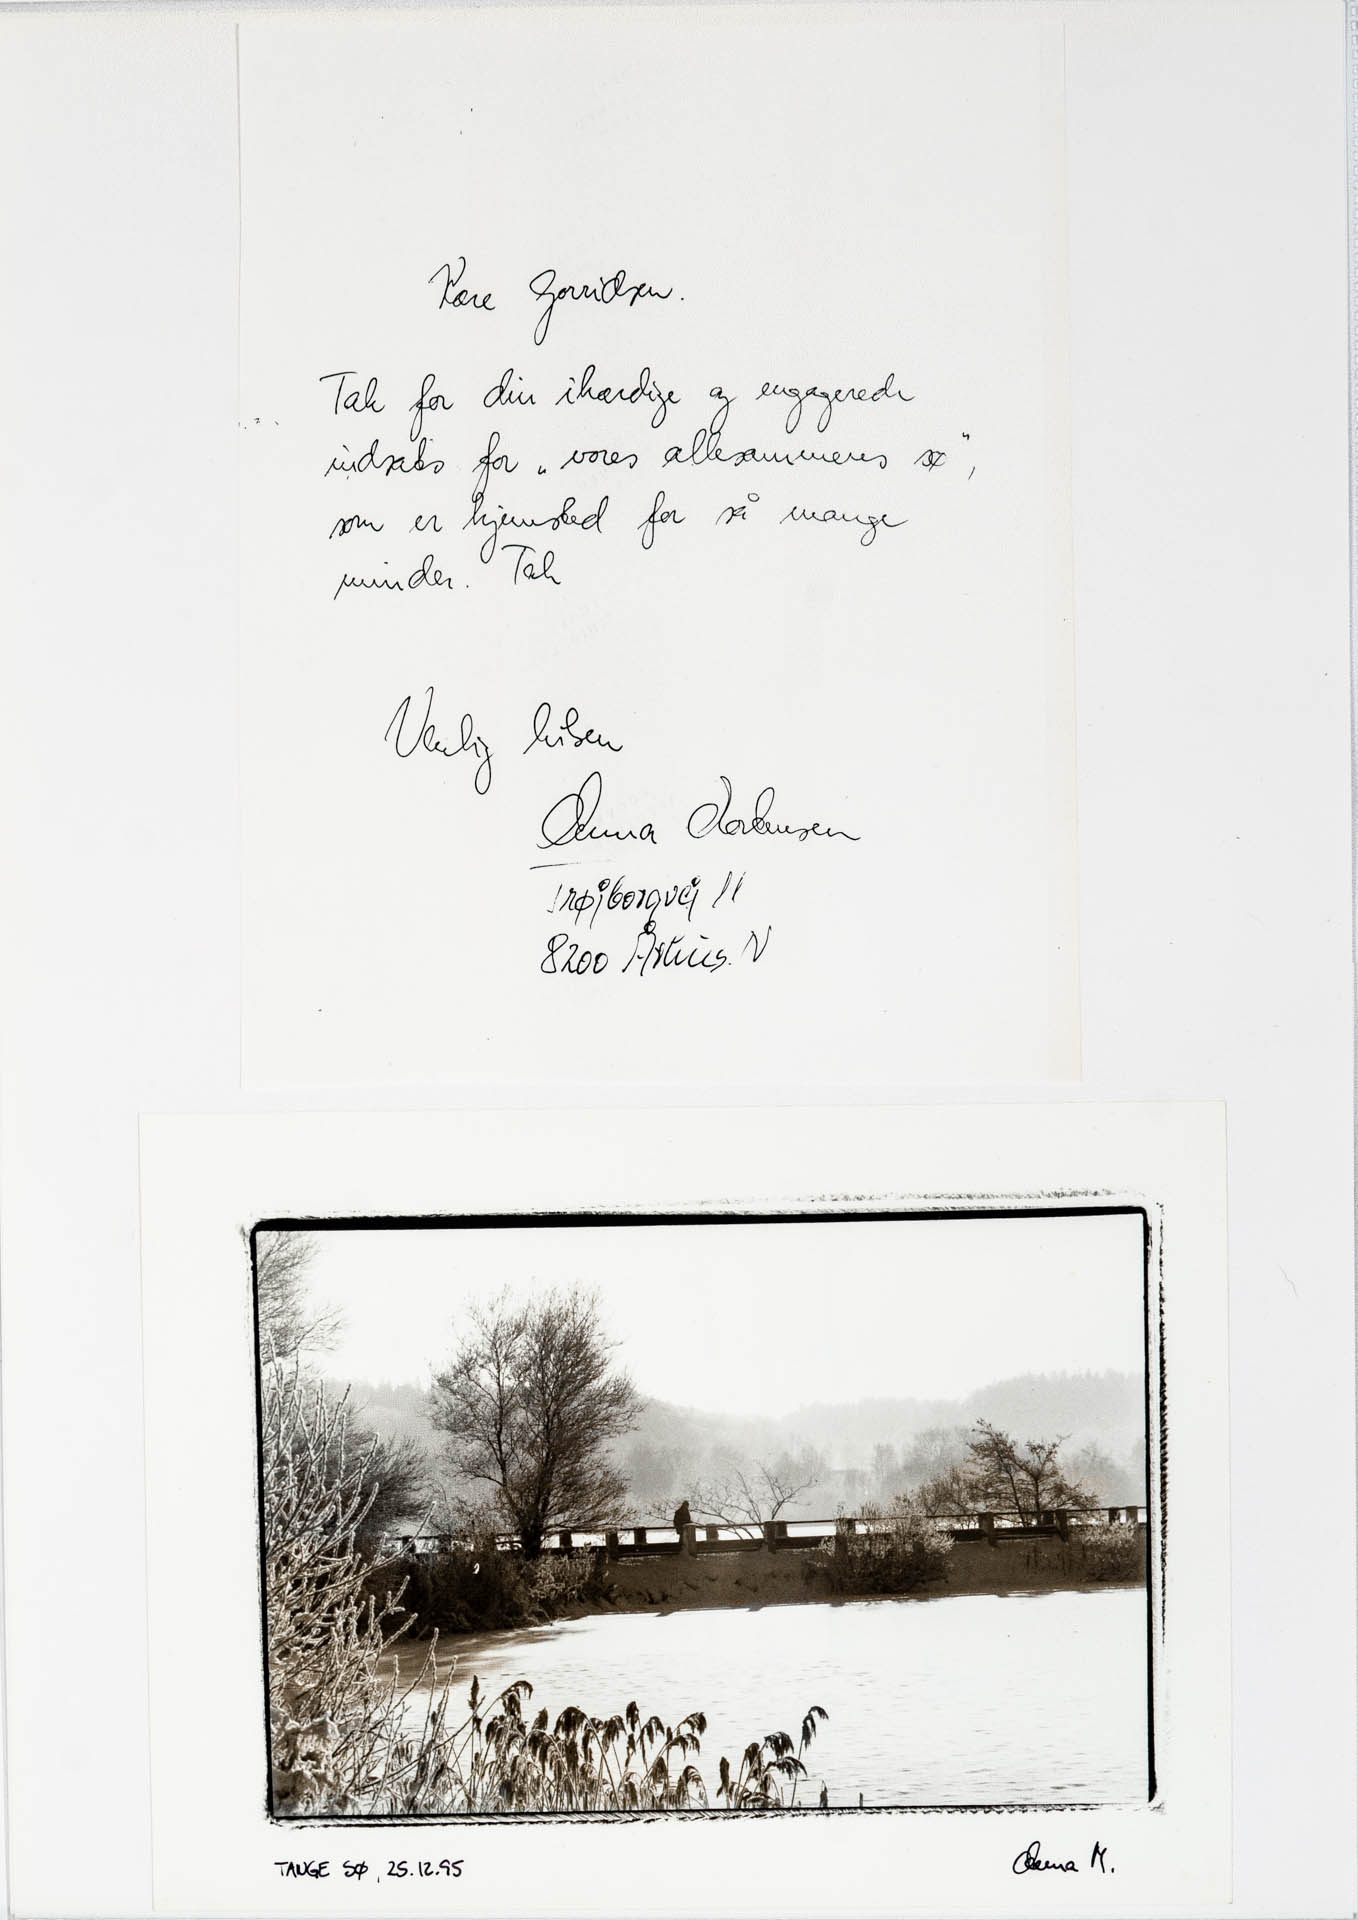 Kære Gorridsen.
Tak for din ihærdige og engagerede
indsats for „vores allesammens sø“,
som er hjemsted for så mange
minder. Tak
Venlig hilsen
Anna Mortensen
Trøjborgvej 11
8200 Århus. N
TANGE SØ, 25.12.95
Anna M.